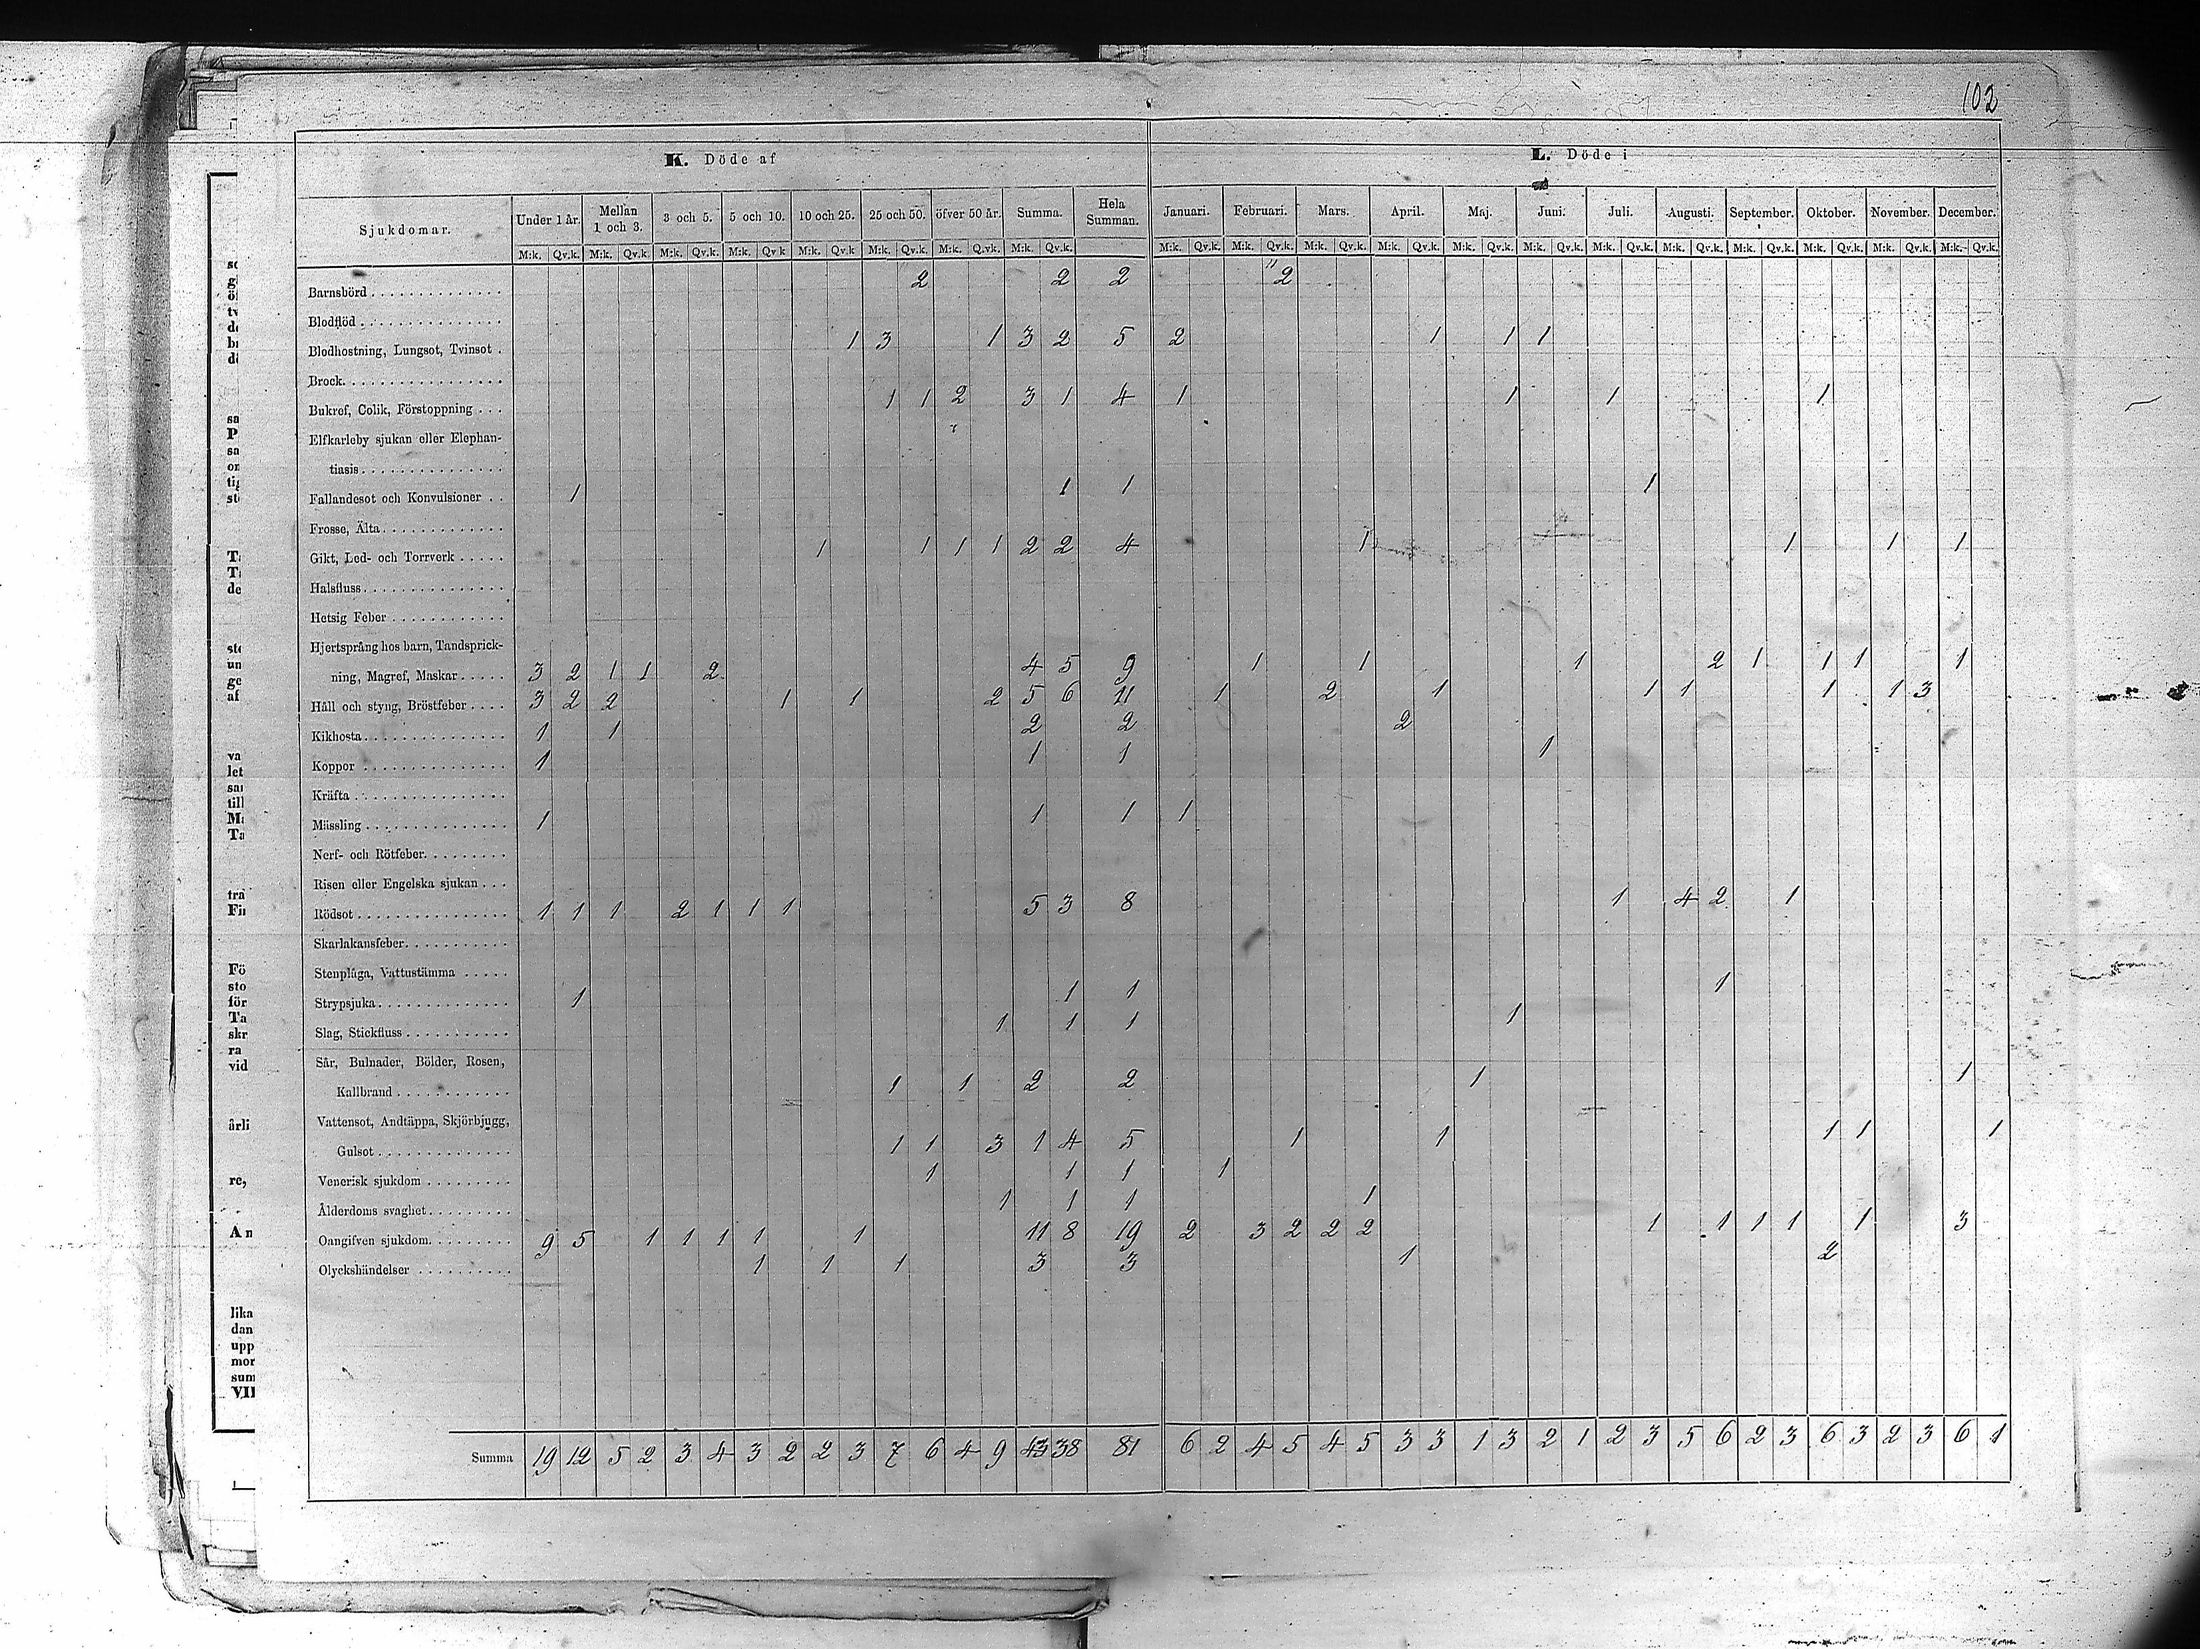 102
K. Döde af
L. Döde i
Sjukdomar. Under 1 år. Mellan 1 och 3. 3 och 5. 5 och 10. 10 och 25. 25 och 50. öfver 50 år. Summa. Hela Summan. Januari. Februari. Mars. April. Maj. Juni. Juli. Augusti. September. Oktober. November. December.
M:k. Qv.k. M:k. Qv.k. M:k. Qv.k. M:k. Qv.k M:k. Qv.k M:k. Qv.k. M:k. Qv.k. M:k. Qv.k. M:k. Qv.k. M:k. Qv.k. M:k. Qv.k. M:k. Qv.k. M:k. Qv.k. M:k. Qv.k. M:k. Qv.k. M:k. Qv.k. M:k. Qv.k. M:k. Qv.k. M:k. Qv.k. M:k. Qv.k.
Barnsbörd 2 2 2 2
Blodflöd
Blodhostning, Lungsot, Tvinsot 1 3 1 3 2 5 2 1 1 1
Brock
Bukref, Colik, Förstoppning 1 1 2 3 1 4 1 1 1 1
Elfkarleby sjukan eller Elephan-
tiasis
Fallandesot och Konvulsioner 1 1 1 1
Frosse, Älta
Gikt, Led- och Torrverk 1 1 1 1 2 2 4 1 1 1 1
Halsfluss
Hetsig Feber
Hjertsprång hos barn, Tandsprick-
ning, Magref, Maskar 3 2 1 1 2 4 5 9 1 1 1 2 1 1 1 1
Håll och styng, Bröstfeber 3 2 2 1 1 2 5 6 11 1 2 1 1 1 1 1 3
Kikhosta 1 1 2 2 2
Koppor 1 1 1 1
Kräfta
Mässling 1 1 1 1
Nerf- och Rötfeber
Risen eller Engelska sjukan
Rödsot 1 1 1 2 1 1 1 5 3 8 1 4 2 1
Skarlakansfeber
Stenplåga, Vattustämma
Strypsjuka 1 1 1 1
Slag, Stickfluss 1 1 1 1
Sår, Bulnader, Bölder, Rosen,
Kallbrand 1 1 2 2 1 1
Vattensot, Andtäppa, Skjörbjugg,
Gulsot 1 1 3 1 4 5 1 1 1 1 1
Venerisk sjukdom 1 1 1 1
Ålderdoms svaghet 1 1 1 1
Oangifven sjukdom 9 5 1 1 1 1 1 11 8 19 2 3 2 2 2 1 1 1 1 1 3
Olyckshändelser 1 1 1 3 3 1 2
Summa 19 12 5 2 3 4 3 2 2 3 7 6 4 9 43 38 81 6 2 4 5 4 5 3 3 1 3 2 1 2 3 5 6 2 3 6 3 2 3 6 1